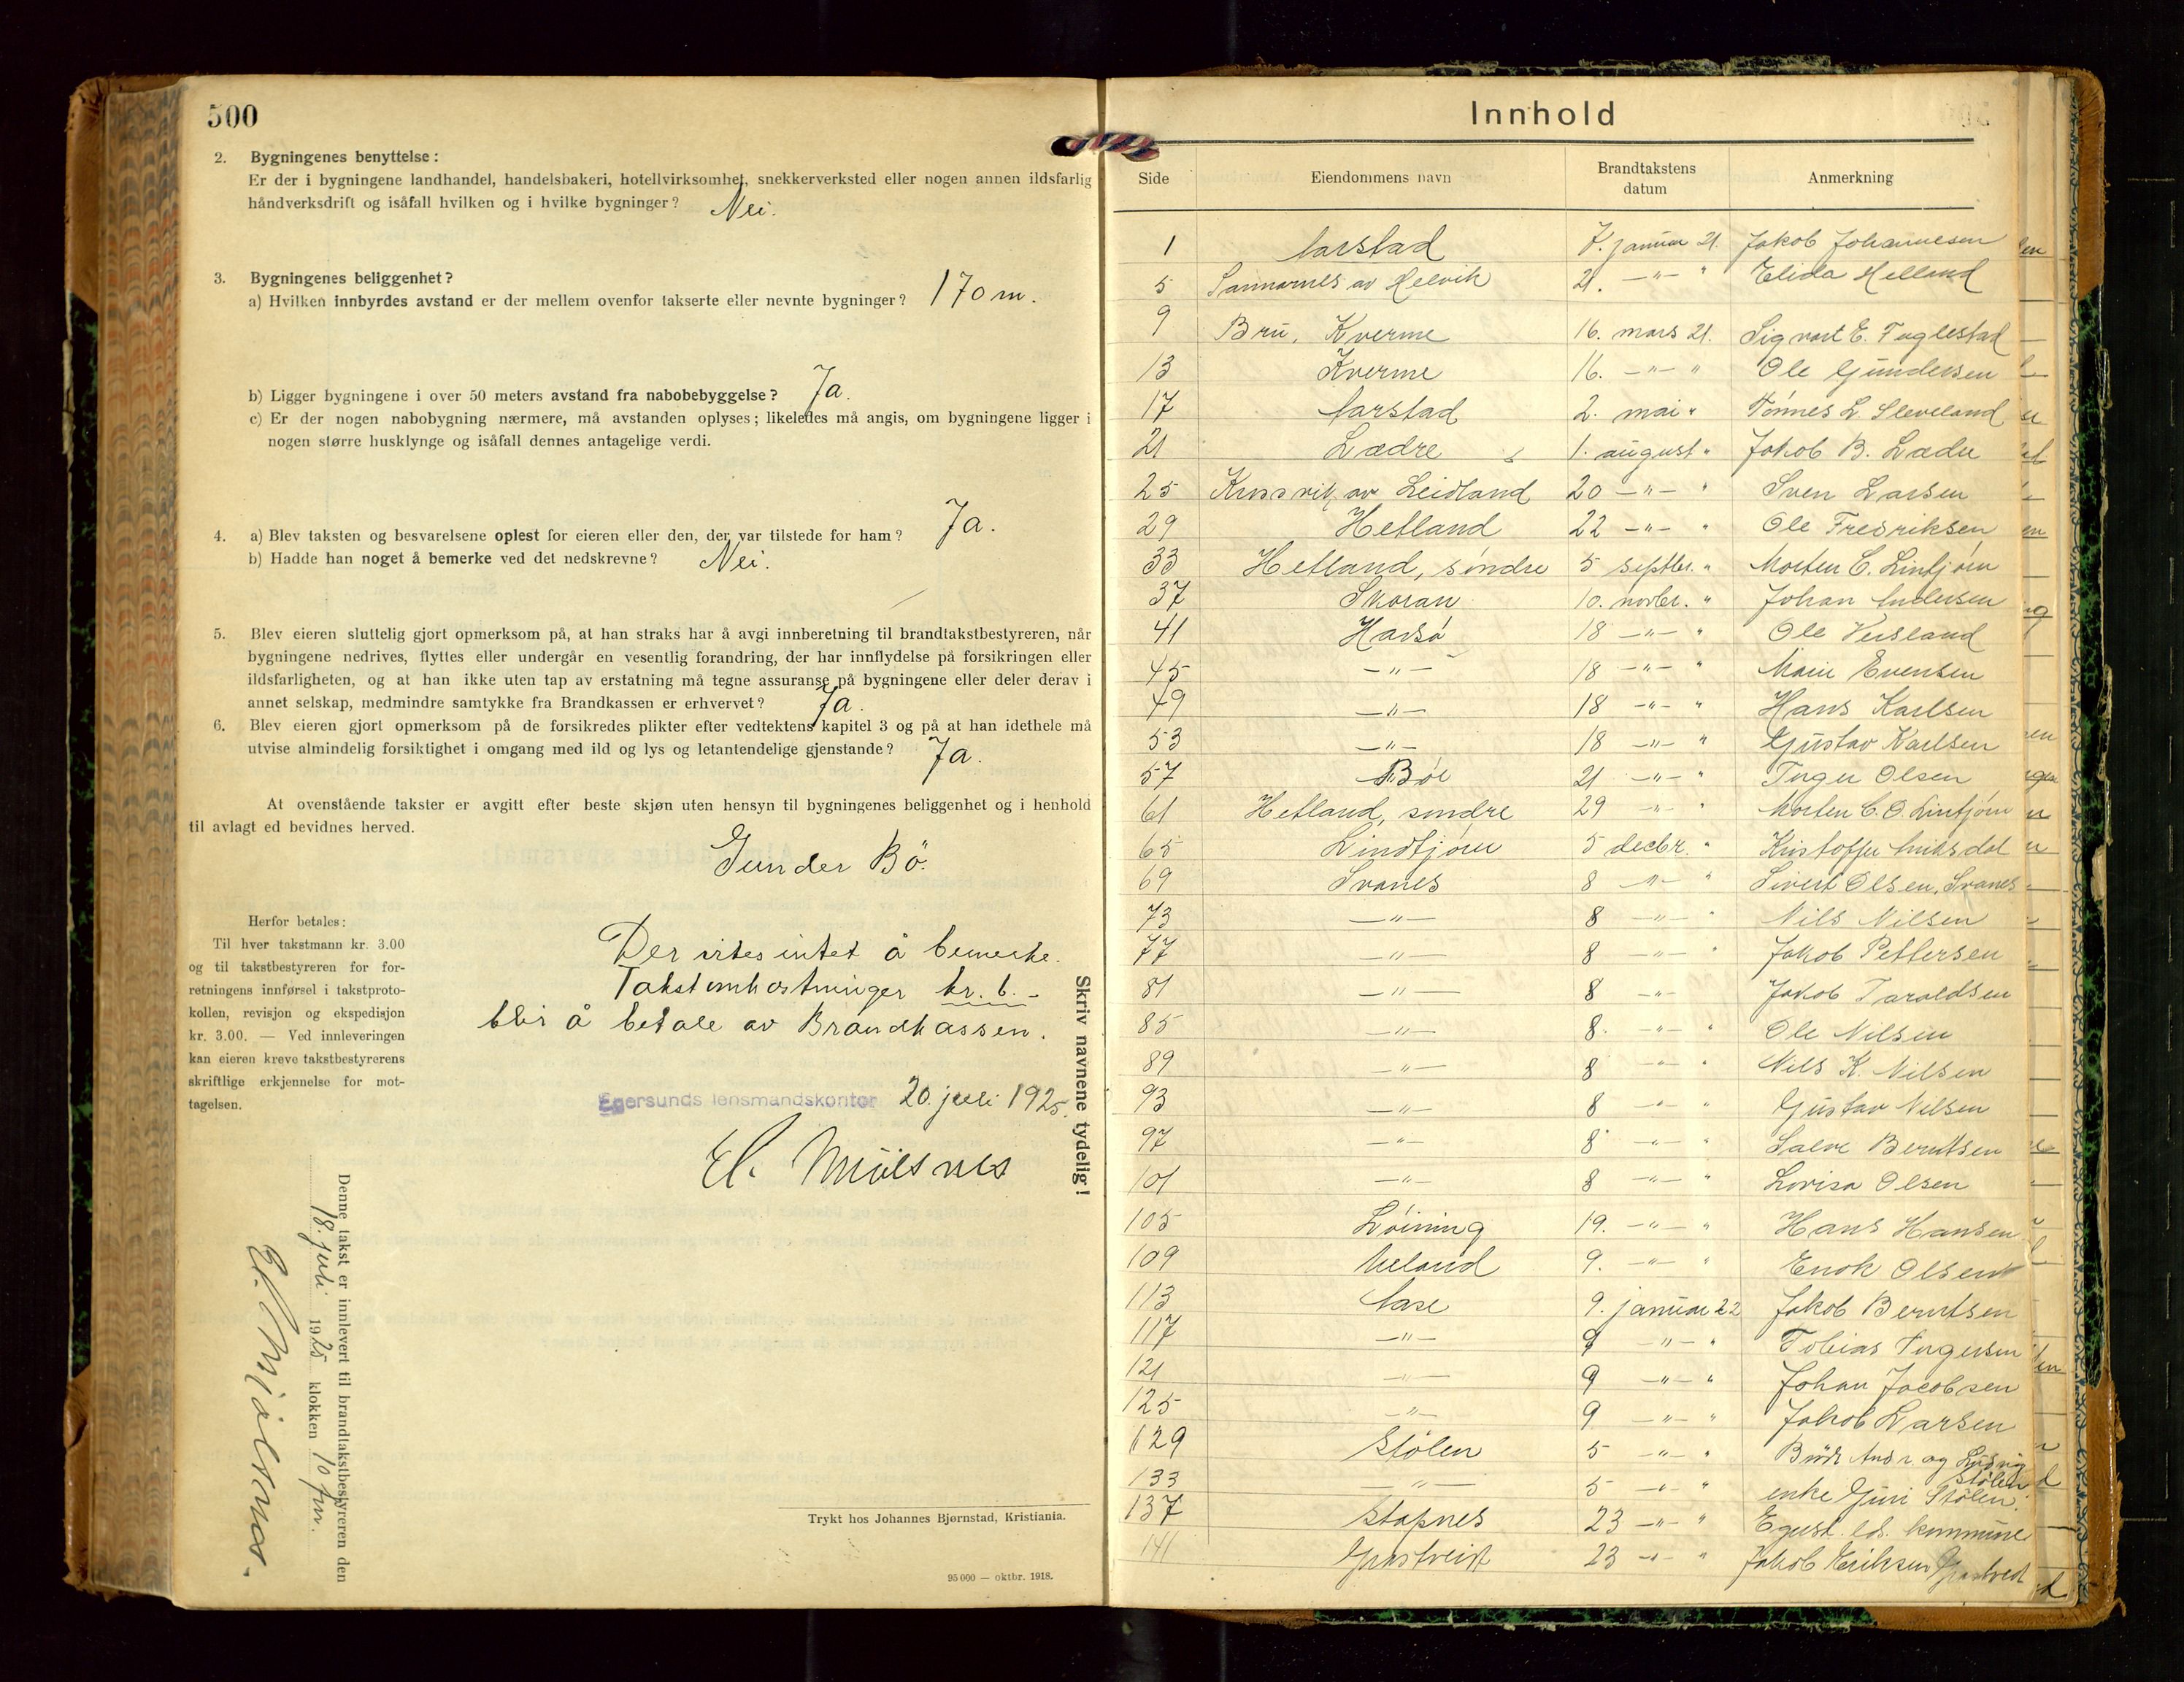 500
2. Bygningenes benyttelse:
Er der i bygningene landhandel, handelsbakeri, hotellvirksomhet, snekkerverksted eller nogen annen ildsfarlig
håndverksdrift og isåfall hvilken og i hvilke bygninger? Nei.
3. Bygningenes beliggenhet?
a) Hvilken innbyrdes avstand er der mellem ovenfor takserte eller nevnte bygninger? 170 m.
b) Ligger bygningene i over 50 meters avstand fra nabobebyggelse? Ja.
c) Er der nogen nabobygning nærmere, må avstanden oplyses; likeledes må angis, om bygningene ligger i
nogen større husklynge og isåfall dennes antagelige verdi.
4. a) Blev taksten og besvarelsene oplest for eieren eller den, der var tilstede for ham? Ja.
b) Hadde han noget å bemerke ved det nedskrevne? Nei.
5. Blev eieren sluttelig gjort opmerksom på, at han straks har å avgi innberetning til brandtakstbestyreren, når
bygningene nedrives, flyttes eller undergår en vesentlig forandring, der har innflydelse på forsikringen eller
ildsfarligheten, og at han ikke uten tap av erstatning må tegne assuranse på bygningene eller deler derav i
annet selskap, medmindre samtykke fra Brandkassen er erhvervet? Ja.
6. Blev eieren gjort opmerksom på de forsikredes plikter efter vedtektens kapitel 3 og på at han idethele må
utvise almindelig forsiktighet i omgang med ild og lys og letantendelige gjenstande? Ja.
At ovenstående takster er avgitt efter beste skjøn uten hensyn til bygningenes beliggenhet og i henhold
til avlagt ed bevidnes herved.
Gunder Bö.
Herfor betales:
Til hver takstmann kr. 3.00
og til takstbestyreren for for-
retningens innførsel i takstproto-
kollen, revisjon og ekspedisjon
kr. 3.00. — Ved innleveringen
kan eieren kreve takstbestyrerens
skriftlige erkjennelse for mot-
tagelsen.
Der vites intet å bemerke.
Takstomkostninger kr. 6.-
blir å betale av Brandkassen.
Egersunds lensmandskontor 20. juli 1925.
Skriv navnene tydelig!
Denne takst er innlevert til brandtakstbestyreren den
18. juli 1925 klokken 10 fm.
Trykt hos Johannes Bjørnstad, Kristiania.
95 000 — oktbr. 1918.
Innhold
Side Eiendommens navn Brandtakstens datum Anmerkning
1 Aarstad 7. januar 21. Jakob Johannesen
5 Sannarnes av Helvik 21. —"— " Elida Helland
9 Bru, Kverme 16. mars 21. Sigvart E. Fuglestad
13 Kverme 16. —"— " Ole Gundersen
17 Aarstad 2. mai " Tønnes L. Sleveland
21 Lædre 1. august " Jakob B. Lædre
25 av Leidland 20 —"— " Sven Larsen
29 Hetland 22 —"— " Ole Fredriksen
33 Hetland, søndre 5 septbr. " Morten C. Lintjørn
37 Skoran 10. novbr. " Johan Andersen
41 Havsø 18 —"— " Ole Veisland
45 —"— 18 —"— " Marie Evensen
49 —"— 18 —"— " Hans Karlsen
53 —"— 18 —"— " Gustav Karlsen
57 Bøe 21 —"— " Inger Olsen
61 Hetland, søndre 29 —"— " Morten C. O. Lintjørn
65 Lindtjørn 5 decbr. " Kristoffer
69 Svanes 8 —"— " Sivert Olsen, Svanes
73 —"— 8 —"— " Nils Nilsen
77 —"— 8 —"— " Jakob Pettersen
81 —"— 8 —"— Jakob Taraldsen
85 —"— 8. —"— " Ole Nilsen
89 —"— 8 —"— " Nils K. Nilsen
93 —"— 8 —"— " Gustav Nilsen
97 —"— 8 —"— " Salve Berntsen
101 —"— 8 —"— " Lovisa Olsen
105 Løining 19. —"— " Hans Hansen
109 Ueland 9. —"— " Enok Olsen
113 Aase 9. januar 22 Jakob Berntsen
117 —"— 9 —"— " Tobias Ingersen
121 —"— 9 —"— " Johan Jacobsen
125 —"— 9 —"— " Jakob Larsen
129 Stølen 5 —"— " Brødr. Andr. og Ludvig Stølen
133 —"— 5 —"— " enke Guri Stølen.
137 Stapnes 23 —"— " Egers. lds. kommune
141 Grastveit 23 —"— " Jakob Eriksen Grastveit